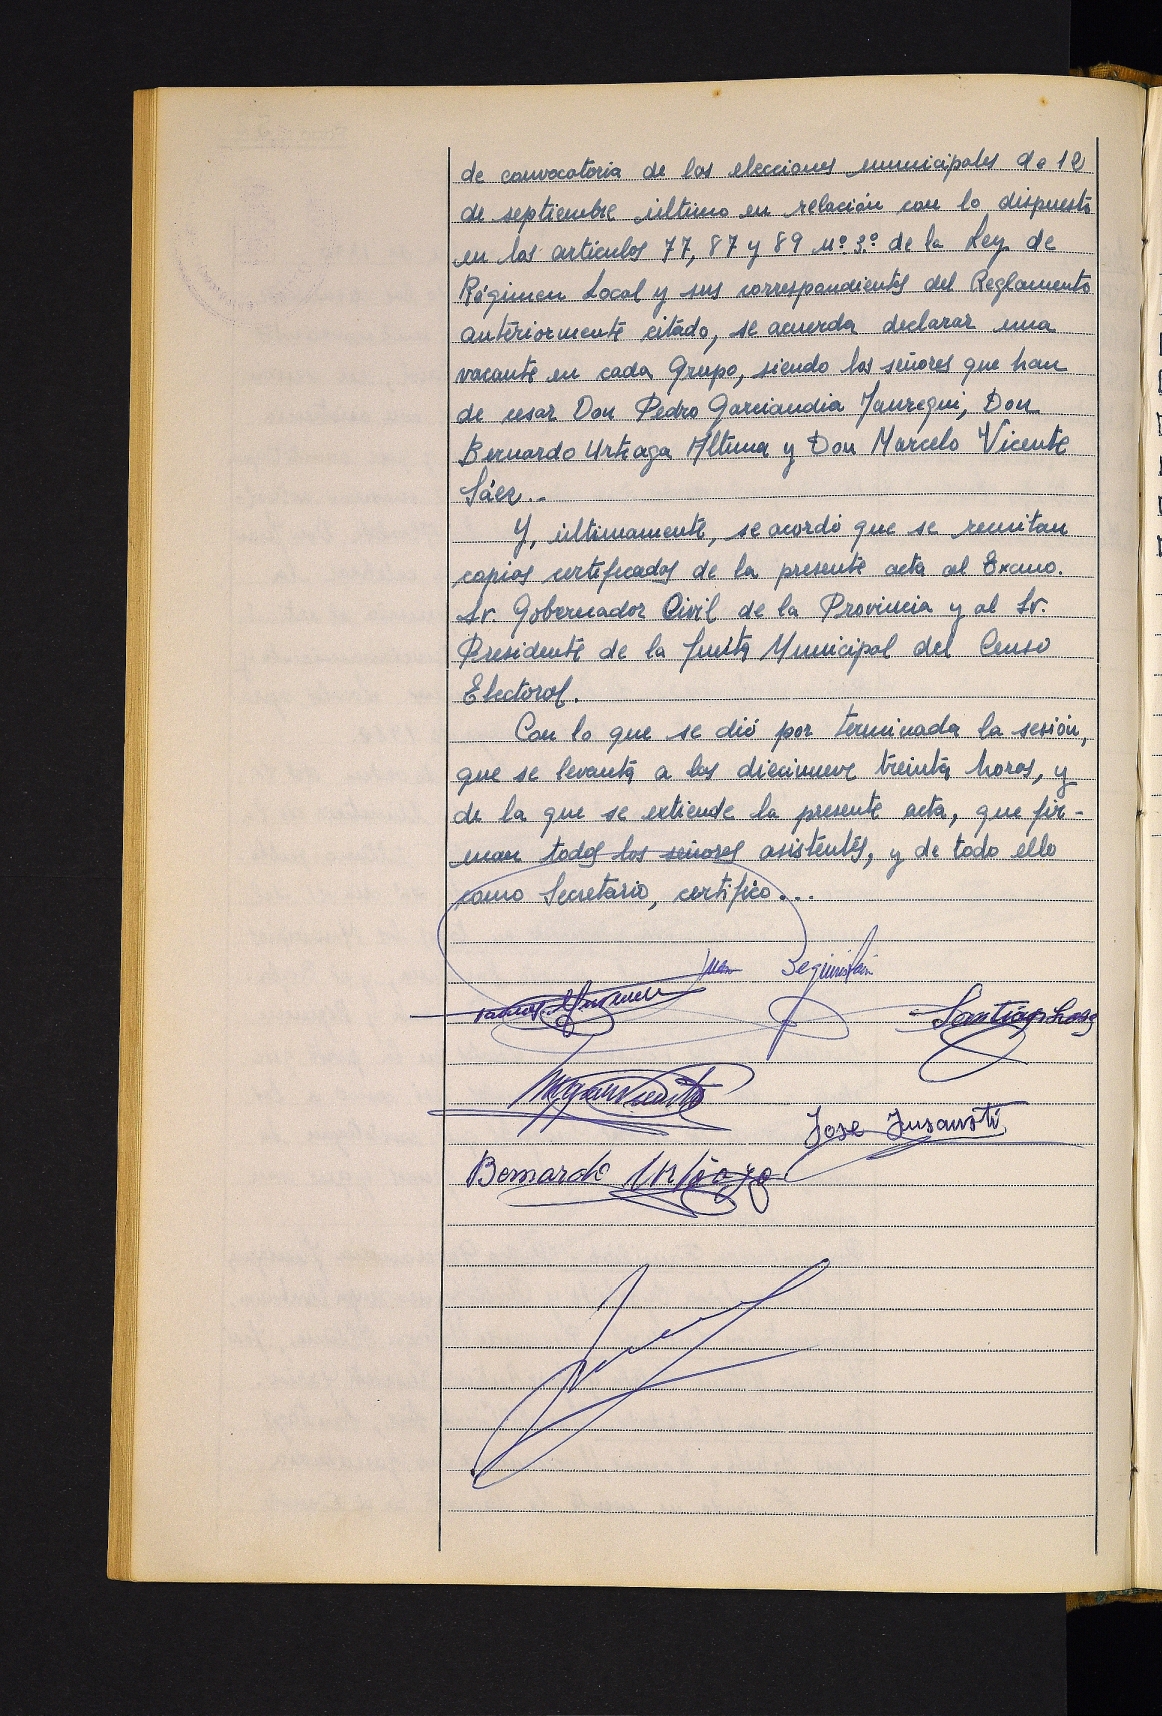 de convocatoria de las elecciones municipales de 12
de septiembre último en relación con lo dispuesto
en los artículos 77, 87 y 89 nº 3º de la Ley de
Régimen Local y sus correspondientes del Reglamento
anteriormente citado, se acuerda declarar una
vacante en cada Grupo, siendo los señores que han
de cesar Don Pedro Garciandia Jauregui, Don
Bernardo Urteaga Altuna y Don Marcelo Vicente
Sáez..
Y, últimamente, se acordó que se remitan
copias certificadas de la presente acta al Excmo.
Sr. Gobernador Civil de la Provincia y al Sr.
Presidente de la Junta Municipal del Censo
Electoral.
Con lo que se dió por terminada la sesión,
que se levanta a las diecinueve treinta horas, y
de la que se extiende la presente acta, que fir-
man todos los señores asistentes, y de todo ello
como Secretario, certifico...
Juan Beguiristain
Santiago
Jose Insausti
Bernardo Urteaga